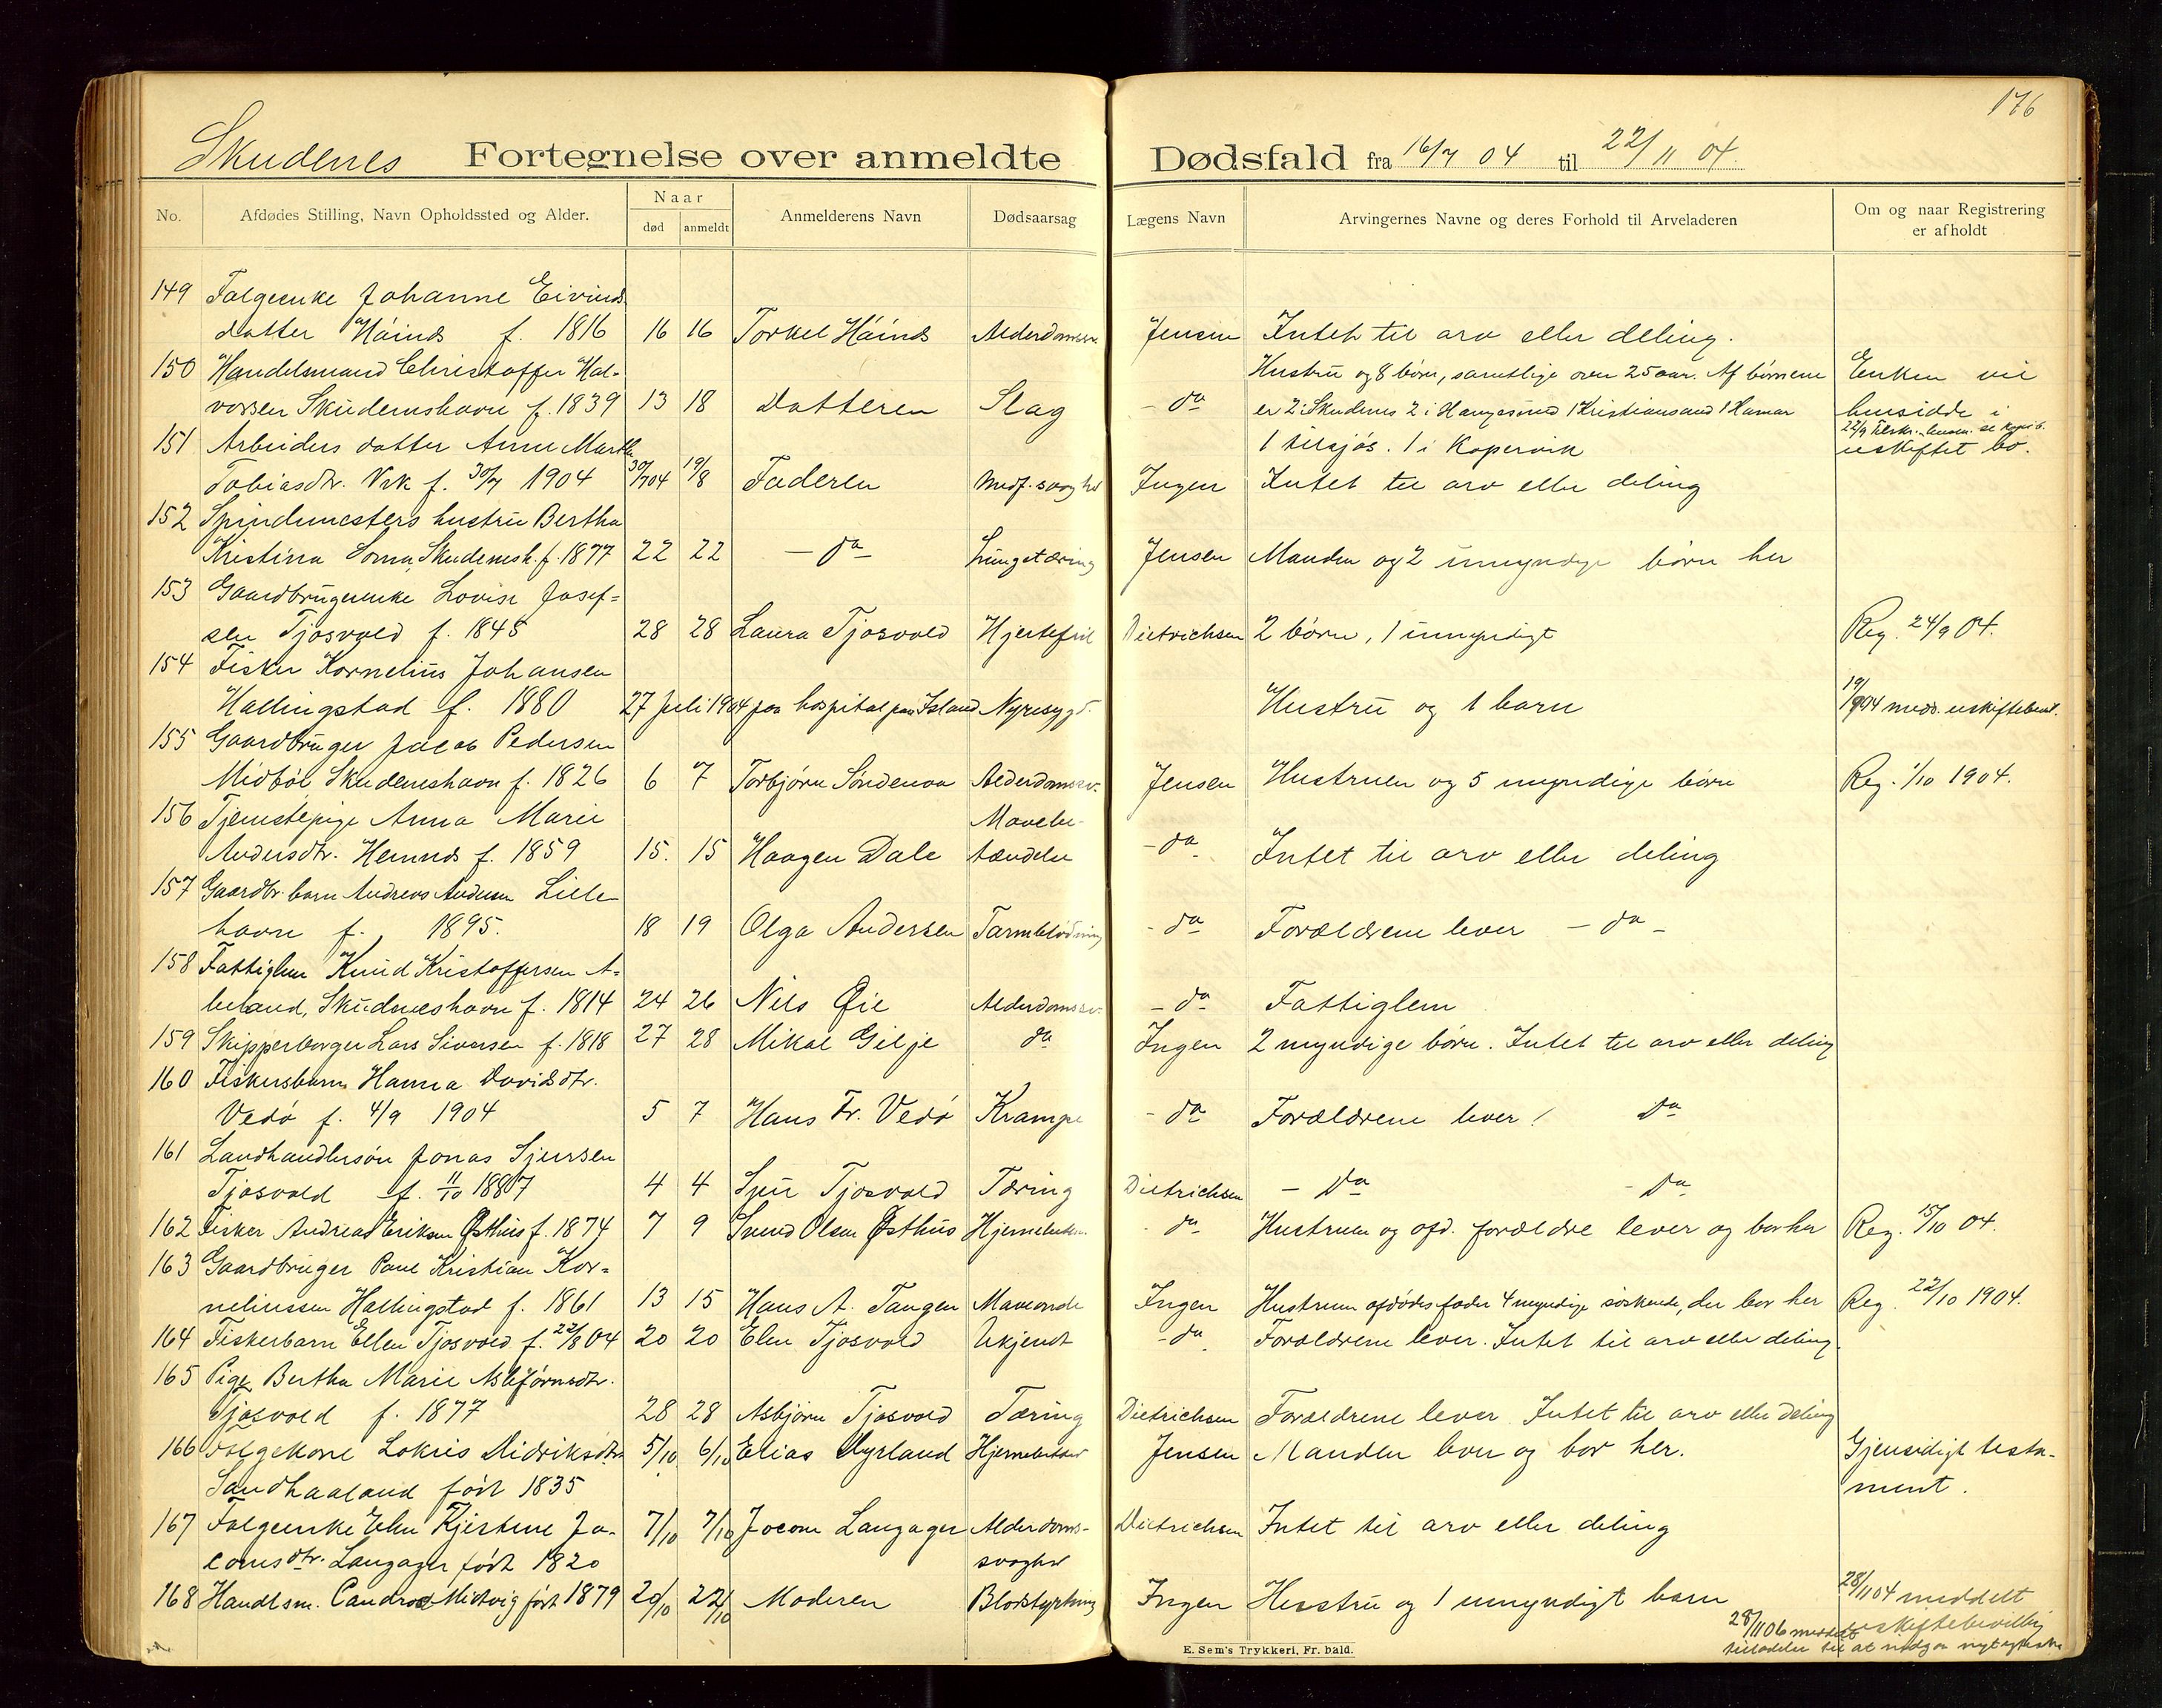 176
Skudenes Fortegnelse over anmeldte Dødsfald fra 16/7 04 til 22/11 04.
No. Afdødes Stilling, Navn Opholdssted og Alder. Naar død anmeldt Anmelderens Navn Dødsaarsag Lægens Navn Arvingernes Navne og deres Forhold til Arveladeren Om og naar Registrering er afholdt
149 Folgeenke Johanne Eivinds
datter Håinds f. 1816 16 16 Torkel Håinds Alderdomssv. Jensen Intet til arv eller deling.
150 Handelsmand Christoffer Hal- Hustru og 8 børn, samtlige over 25 aar. Af børnene Enken vil
vorsen Skudeneshavn f. 1839 13 18 Datteren Slag - da er 2 i Skudenes 2 i Haugesund 1 Kristiansand 1 Hamar hensidde i
151 Arbeiders datter Anne Martha 1 tilsjøs. 1 i Kopervik uskiftet bo.
Tobiasdtr. Vik f. 30/7 1904 30/7 04 19/8 Faderen Medf. svaghed Ingen Intet til arv eller deling
152 Spindemesters hustru Bertha
Kristina Soma, Skudenesh. f. 1877 22 22 - da - Lungetæring Jensen Manden og 2 umyndige børn her
153 Gaardbrugerenke Lovise Josef-
sen Tjosvold f. 1845 28 28 Laura Tjosvold Hjertefeil Dietrichsen 2 børn, 1 umyndigt Reg. 24/9 04.
154 Fisker Kornelius Johansen
Hallingstad f. 1880 27 Juli 1904 paa hospital paa Island Nyresygd. Hustru og 1 barn 19/9 04 medd. uskiftebevil.
155 Gaardbruger Jacob Pedersen
Midbøe Skudeneshavn f. 1826 6 7 Torbjørn Søndenaa Alderdomssv. Jensen Hustruen og 5 myndige børn Reg. 1/10 1904.
156 Tjenestepige Anna Marie Mavebe-
Andersdtr. Hemnes f. 1859 15. 15 Haagen Dale tændelse - da - Intet til arv eller deling
157 Gaardbr. barn Andreas Andersen Lille
havn f. 1895. 18 19 Olga Andersen Tarmblødning - da Forældrene lever - da -
158 Fattiglem Knud Kristoffersen A-
beland, Skudeneshavn f. 1814 24 26 Nils Øie Alderdomssv. - da - Fattiglem
159 Skipperborger Lars Siversen f. 1818 27 28 Mikal Gilje da Ingen 2 myndige børn. Intet til arv eller deling
160 Fiskersbarn Hanna Davidsdtr.
Vedø f. 4/9 1904 5 7 Hans Fr. Vedø Krampe - da Forældrene lever. da
161 Landhandlersøn Jonas Sjursen
Tjosvold f. 11/10 1887 4 4 Sjur Tjosvold Tæring Dietrichsen - da - da
162 Fisker Andreas Eriksen Østhus f. 1874 7 9 Svend Olsen Østhus - da Hustruen og afd. forældre lever og bor her Reg. 15/10 04.
163 Gaardbruger Paul Kristian Kor-
neliussen Hallingstad f. 1861 13 15 Hans A. Tangen Maveonde Ingen Hustruen afdødes fader 4 myndige søskende, der bor her Reg. 22/10 1904.
164 Fiskerbarn Ellen Tjosvold f. 22/8 04 20 20 Elen Tjosvold Ukjendt - da Forældrene lever. Intet til arv eller deling.
165 Pige Bertha Marie Asbjørnsdtr.
Tjosvold f. 1877 28 28 Asbjørn Tjosvold Tæring Dietrichsen Forældrene lever. Intet til arv eller deling
166 Folgekone Lokris Didriksdtr. 5/10 6/10 Elias Myrland Jensen Manden lever og bor her. Gjensidigt testa-
Sandhaaland født 1835 ment.
167 Folgeenke Elen Kjirstine Ja- 7/10 7/10 Jocom Langager Alderdoms- Dietrichsen Intet til arv eller deling
comsdtr. Langager født 1820 svaghed
168 Handlsm. Midtvig født 1879 20/10 22/10 Moderen Blodstyrtning Ingen Hustru og 1 umyndigt barn 28/11 04 meddelt
uskiftebevilling
28/11 06 meddelt
tilladelse til at indgaa nyt ægteskab
E. Sem's Trykkeri, Fr. hald.